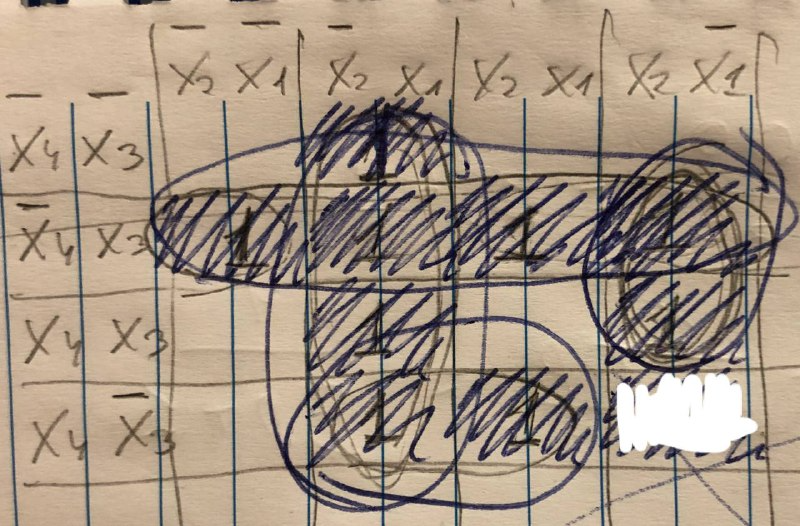 x̄₂ x̄₁ x̄₂ x₁ x₂ x₁ x₂ x̄₁
x̄₄ x̄₃ 1
x̄₄ x₃ 1 1 1 1
x₄ x₃ 1 1
x₄ x̄₃ 1 1